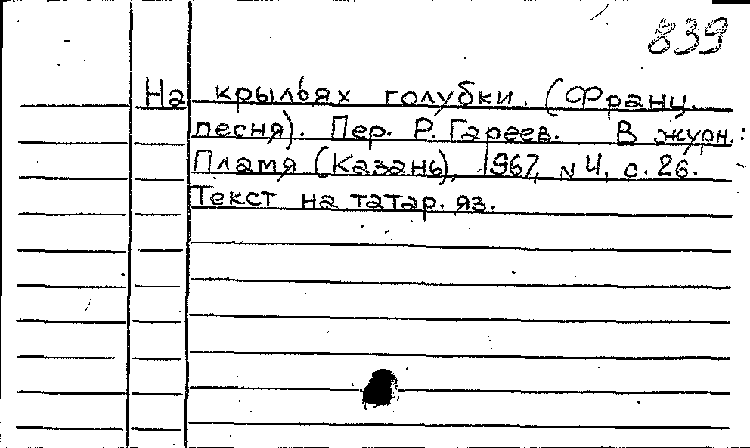 839
На крыльях голубки. (Франц.
песня). Пер. Р. Гареев. В журн.:
Пламя (Казань), 1967, N 4, с. 26.
Текст на татар. яз.